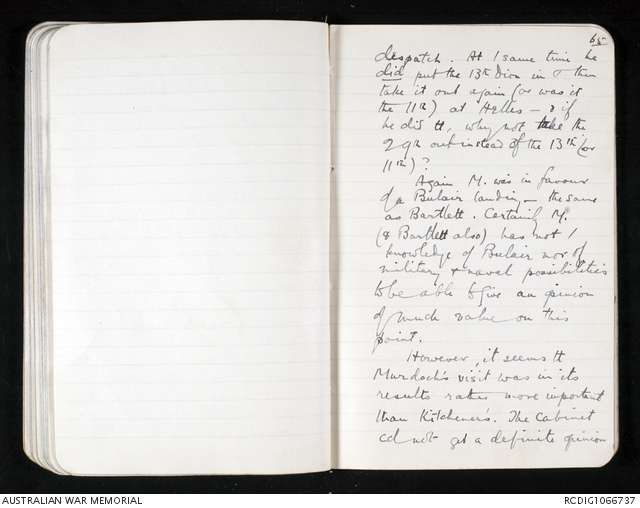 65
despatch. At / same time he
did put the 13th Divn in & then
take it out again (or was it
the 11th) at Helles – & if
he did tt, why not take the
29th out instead of the 13th (or
11th)?
Again M. was in favour
of a Bulair landing – the same
as Bartlett. Certainly M.
(& Bartlett also) has not /
knowledge of Bulair nor of
military & naval possibilities
to be able to give an opinion
of much value on this
point.
However, it seems tt
Murdoch's visit was in its
results rather more important
than Kitchener's. The Cabinet
cd not get a definite opinion
AUSTRALIAN WAR MEMORIAL
RCDIG1066737